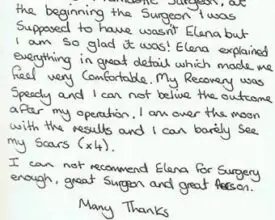 Fantastic Surgeon, at
the beginning the Surgeon I was
Supposed to have wasn't Elena but
I am so glad it was! Elena explained
everything in great detail which made me
feel very Comfortable. My Recovery was
Speedy and I can not belive the outcome
after my operation. I am over the moon
with the results and I can barely see
my Scars (x4).
I can not recommend Elena for Surgery
enough, great Surgeon and great Person.
Many Thanks